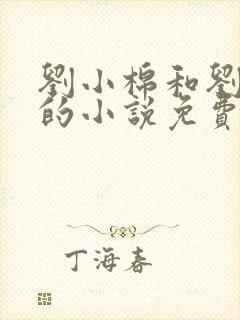 劉小棉和劉
的小說免費
丁海春